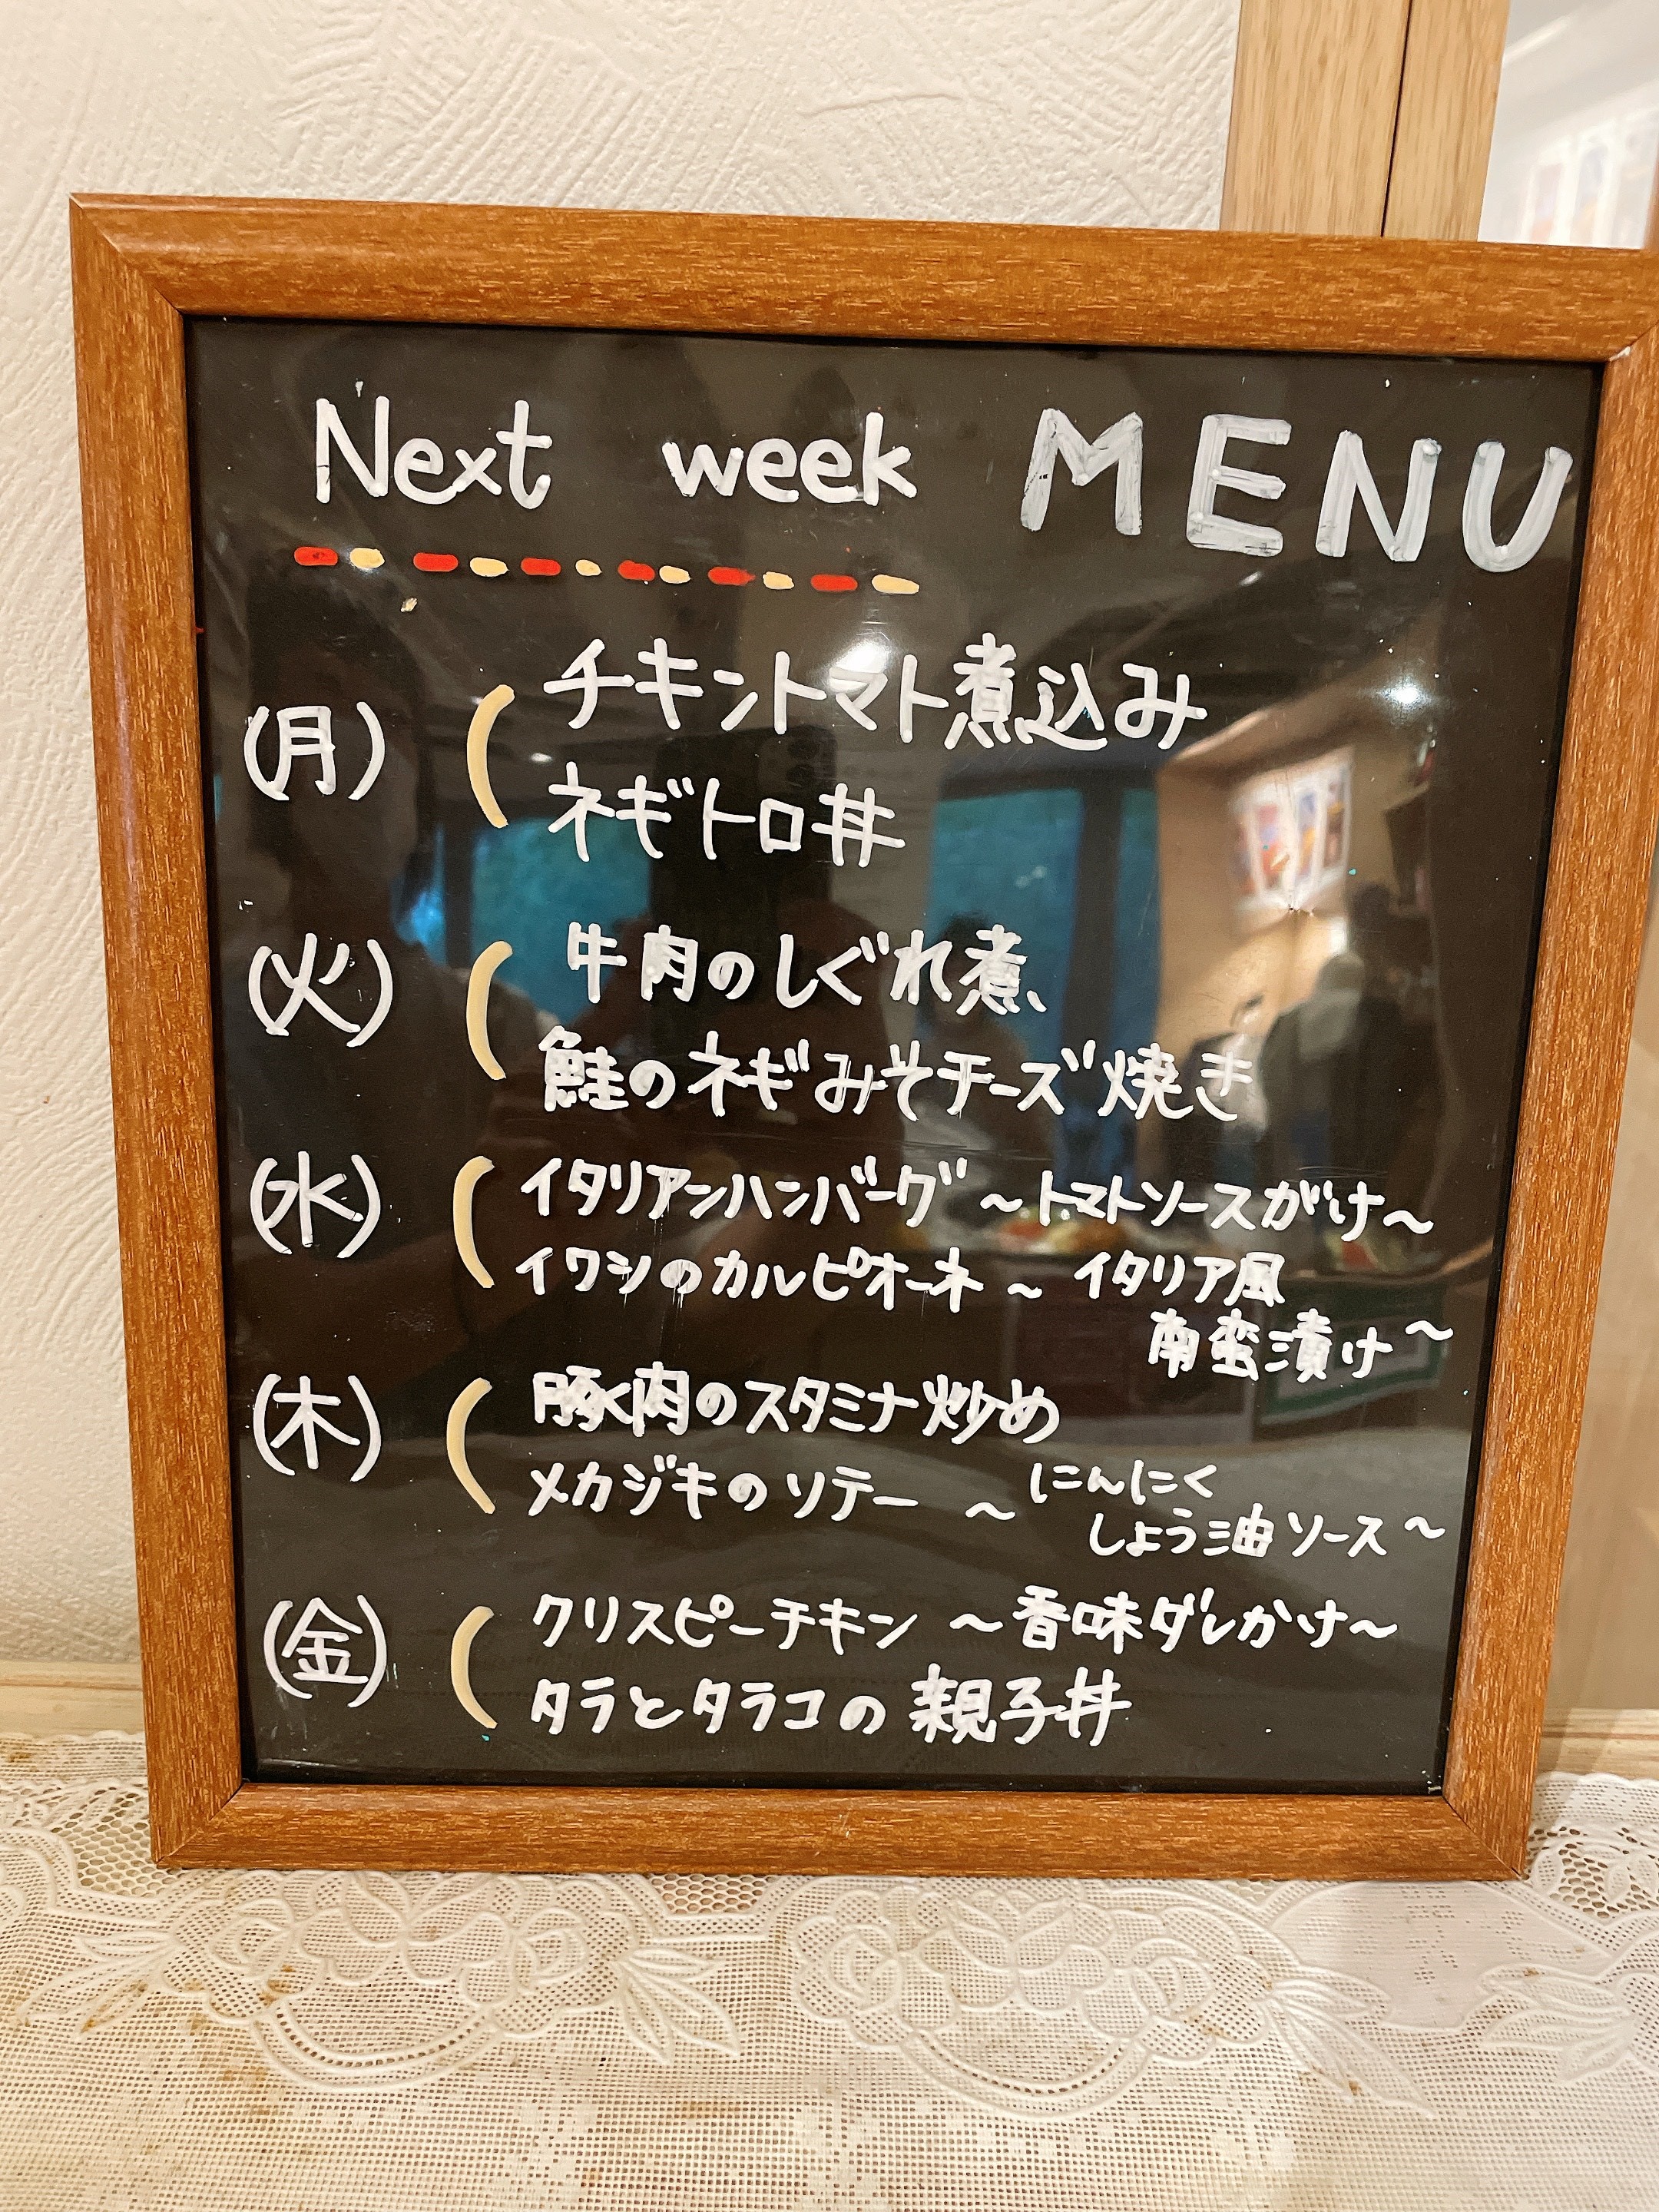 Next week MENU
(月) チキントマト煮込み
ネギトロ丼
(火) 牛肉のしぐれ煮
鮭のネギみそチーズ焼き
(水) イタリアンハンバーグ ～トマトソースがけ～
イワシのカルピオーネ ～ イタリア風
南蛮漬け～
(木) 豚肉のスタミナ炒め
メカジキのソテー ～ にんにく
しょう油ソース～
(金) クリスピーチキン ～香味ダレかけ～
タラとタラコの親子丼